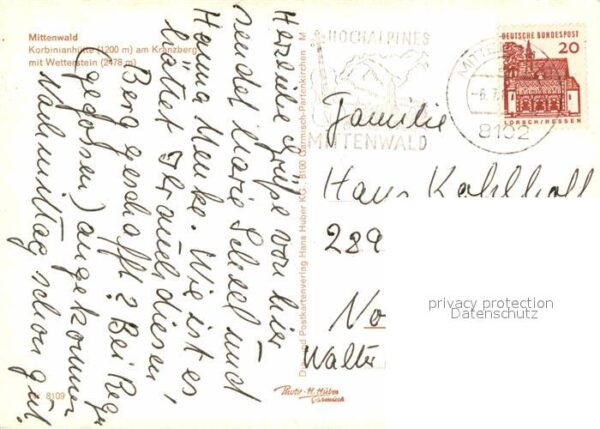 Mittenwald
Korbinianhütte (1200 m) am Kranzberg
mit Wetterstein (2478 m)
Herzliche Grüße von hier
sendet Marie Scheel und
Hanna Menke. Wie ist es
Ihr auch diesen
Berg geschafft? Bei Reg
(gegossen) angekommen
Nachmittag schon gut!
8109
Druck und Postkartenverlag Hans Huber KG · 8100 Garmisch-Partenkirchen
Photo-H. Huber
Garmisch
HOCHALPINES
MITTENWALD
8102
DEUTSCHE BUNDESPOST
20
LORSCH/HESSEN
Familie
Hans
289
No
Walter
privacy protection
Datenschutz